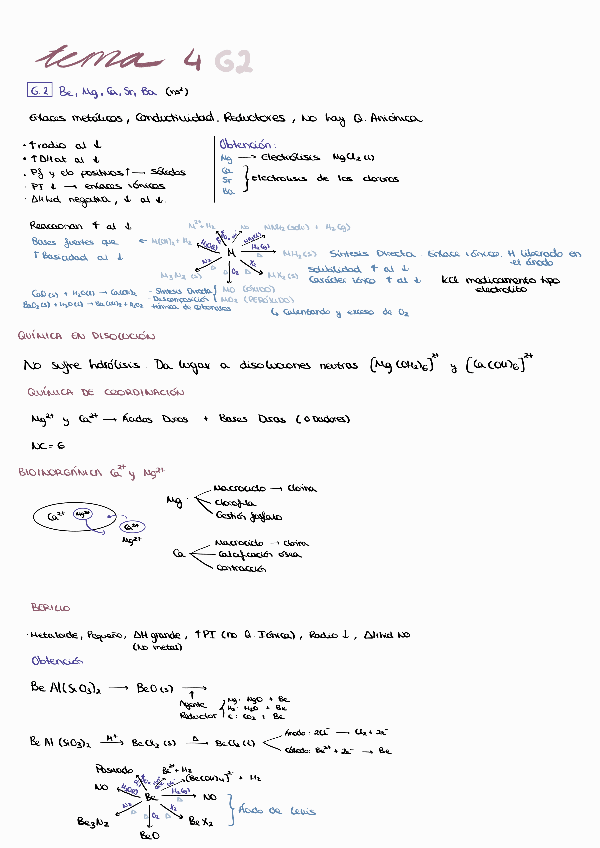 tema 4 G2
G.2 Be, Mg, Ca, Sr, Ba (ns²)
Enlaces metálicos, Conductividad, Reductores, No hay Q. Aniónica
· ↑radio al ↓
· ↑ΔHat al ↓
· Pf y elo positivos ↑ → sólidos
· PI ↓ → enlaces iónicos
· ΔHhid negativa, ↓ al ↓
Obtención:
Mg → Electrólisis MgCl₂(l)
Ca
Sr } electrolisis de los cloruros
Ba
Reaccionan ↑ al ↓
Bases fuertes que
↑ Basicidad al ↓
M²⁺ + H₂
NO
M(NH₂)₂ (solv) + H₂(g)
M(OH)₂ + H₂
H₂O(l)
NH₃(l)
H₂(g)
M
MH₂(s) Síntesis Directa. Enlace iónico. H liberado en el ánodo
N₂
O₂
X₂
M₃N₂(s)
MX₂(s) solubilidad ↑ al ↓
Carácter iónico ↑ al ↓
KCl medicamento tipo electrolito
CaO(s) + H₂O(l) → Ca(OH)₂
BaO₂(s) + H₂O(l) → Ba(OH)₂ + H₂O₂
- Síntesis Directa
- Descomposición térmica de carbonatos
MO (óxido)
MO₂ (PERÓXIDO)
↳ Calentando y exceso de O₂
QUÍMICA EN DISOLUCIÓN
No sufre hidrólisis. Da lugar a disoluciones neutras [Mg(OH₂)₆]²⁺ y [Ca(OH₂)₆]²⁺
QUÍMICA DE COORDINACIÓN
Mg²⁺ y Ca²⁺ → Ácidos Duros + Bases Duras (O Dadores)
NC = 6
BIOINORGÁNICA Ca²⁺ y Mg²⁺
Ca²⁺ Mg²⁺
Ca²⁺
Mg²⁺
Mg
Macrociclo → cloina
Clorofila
Gestión fosfato
Ca
Macrociclo → cloina
Calcificación ósea
Contracción
BERILIO
· Metaloide, Pequeño, ΔH grande, ↑PI (no Q. Iónica), Radio ↓, ΔHhid NO
(No metal)
Obtención
Be Al(SiO₃)₂ → BeO(s) →
Agente Reductor
Mg: MgO + Be
H₂: H₂O + Be
C: CO₂ + Be
Be Al (SiO₃)₂ H⁺→ BeCl₂(s) Δ→ BeCl₂(l)
Ánodo: 2Cl⁻ → Cl₂ + 2e⁻
Cátodo: Be²⁺ + 2e⁻ → Be
Pasivado
Be²⁺ + H₂
[Be(OH)₄]²⁻ + H₂
NO
H₂O(l)
Be
H₂(g)
NO
N₂
O₂
X₂
Be₃N₂
BeO
BeX₂
} Ácido de Lewis